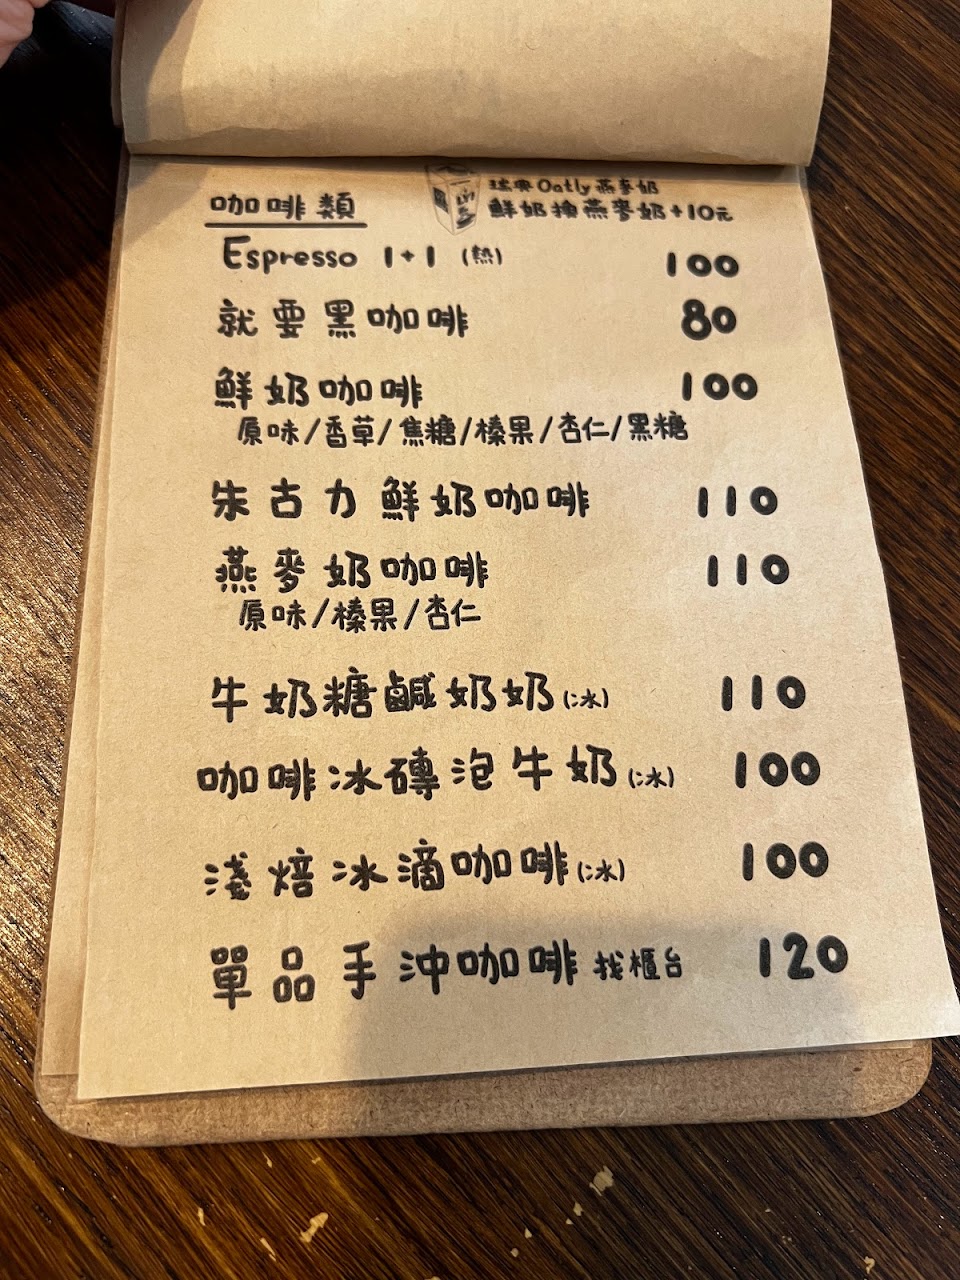 瑞典Oatly燕麥奶
咖啡類 鮮奶換燕麥奶+10元
Espresso 1+1 (熱) 100
就要黑咖啡 80
鮮奶咖啡 100
原味/香草/焦糖/榛果/杏仁/黑糖
朱古力鮮奶咖啡 110
燕麥奶咖啡 110
原味/榛果/杏仁
牛奶糖鹹奶奶(冰) 110
咖啡冰磚泡牛奶(冰) 100
淺焙冰滴咖啡(冰) 100
單品手沖咖啡 找櫃台 120